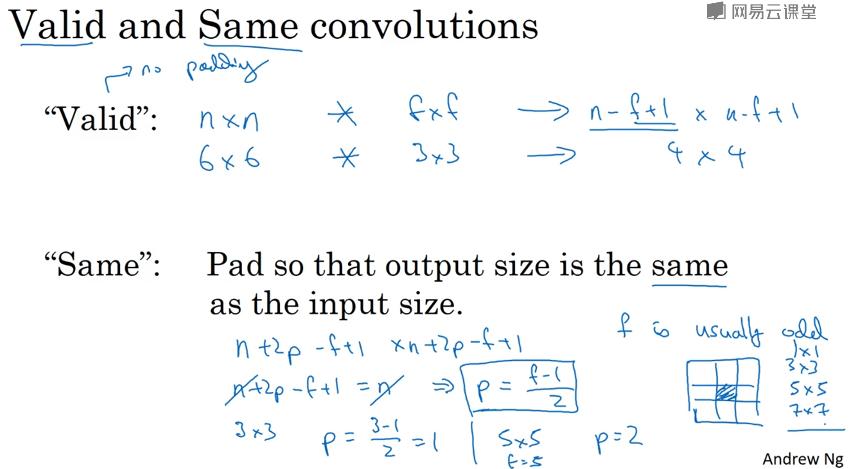 网易云课堂
Valid and Same convolutions
→ no padding
“Valid”: n×n * f×f → n-f+1 × n-f+1
6×6 * 3×3 → 4 × 4
“Same”: Pad so that output size is the same
as the input size.
n+2p-f+1 ×n+2p-f+1
n+2p-f+1 = n ⇒ p = f-1/2
3×3 p = 3-1/2 = 1 | 5×5 p=2
f=5
f is usually odd
1×1
3×3
5×5
7×7
Andrew Ng